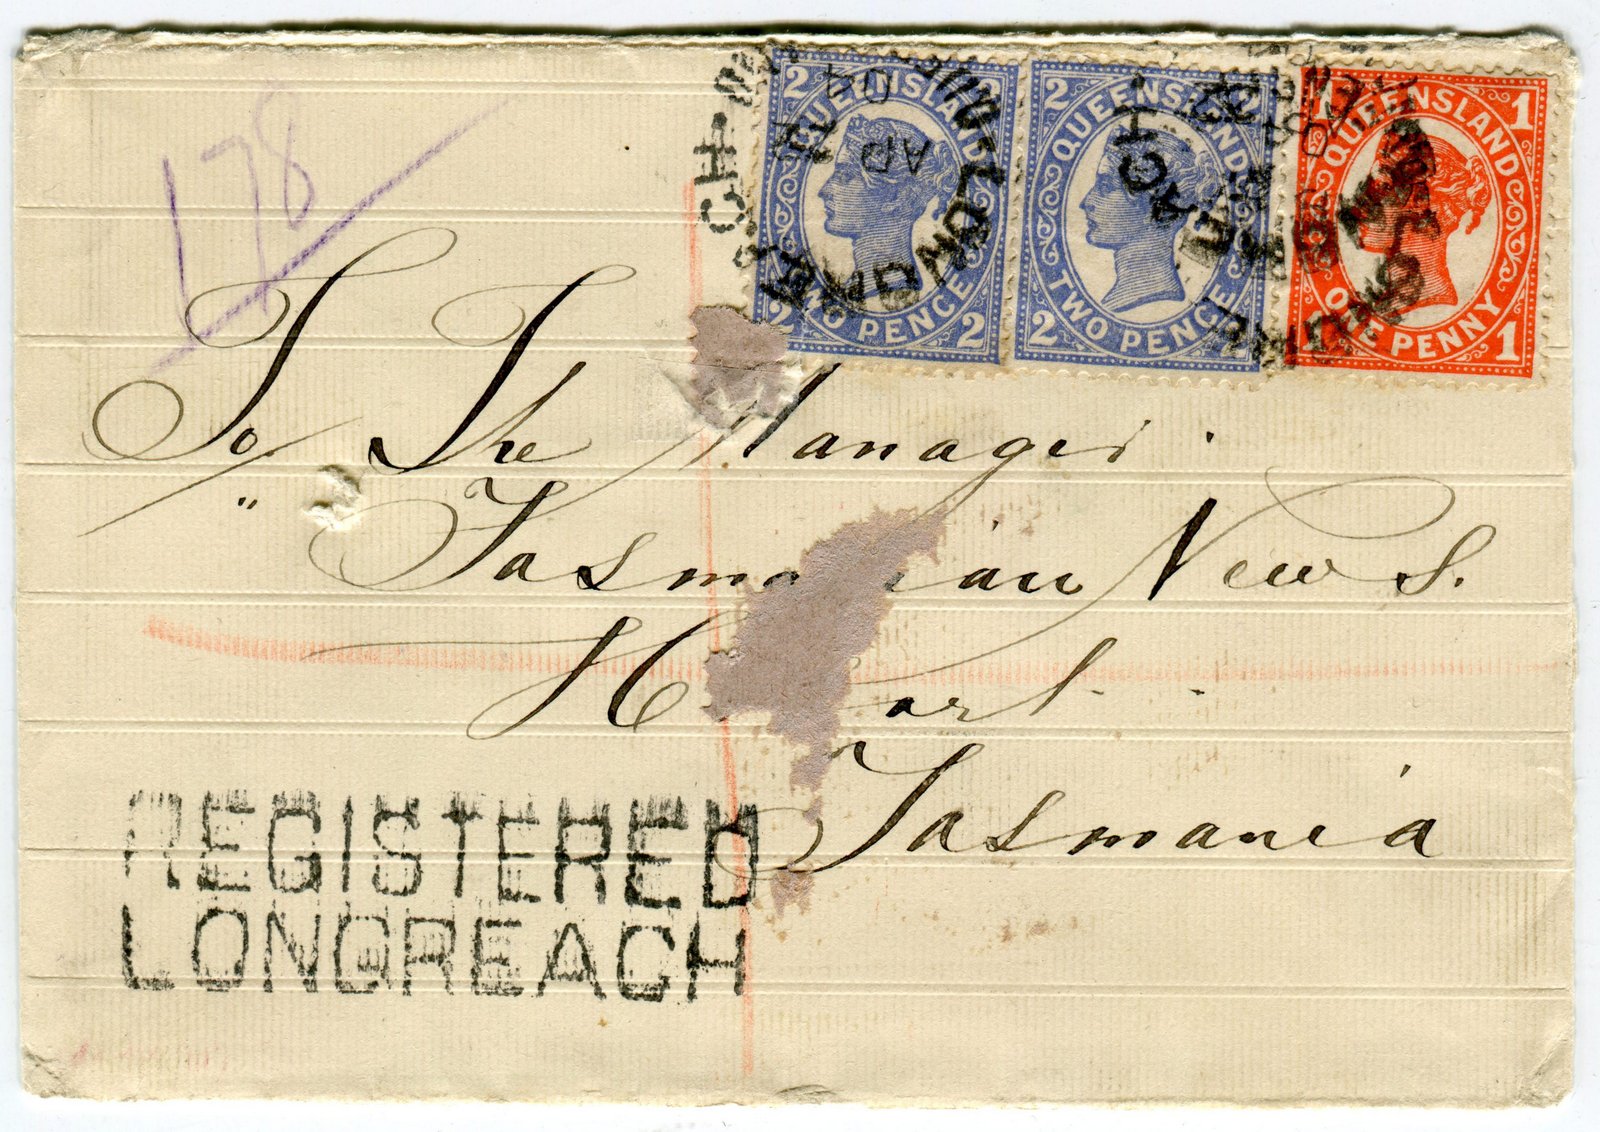 178
2 QUEENSLAND 2
2 TWO PENCE 2
2 QUEENSLAND 2
2 TWO PENCE 2
1 QUEENSLAND 1
ONE PENNY 1
LONGREACH
AP
04
To The Manager
" Tasmanian News.
Tasmania
REGISTERED
LONGREACH